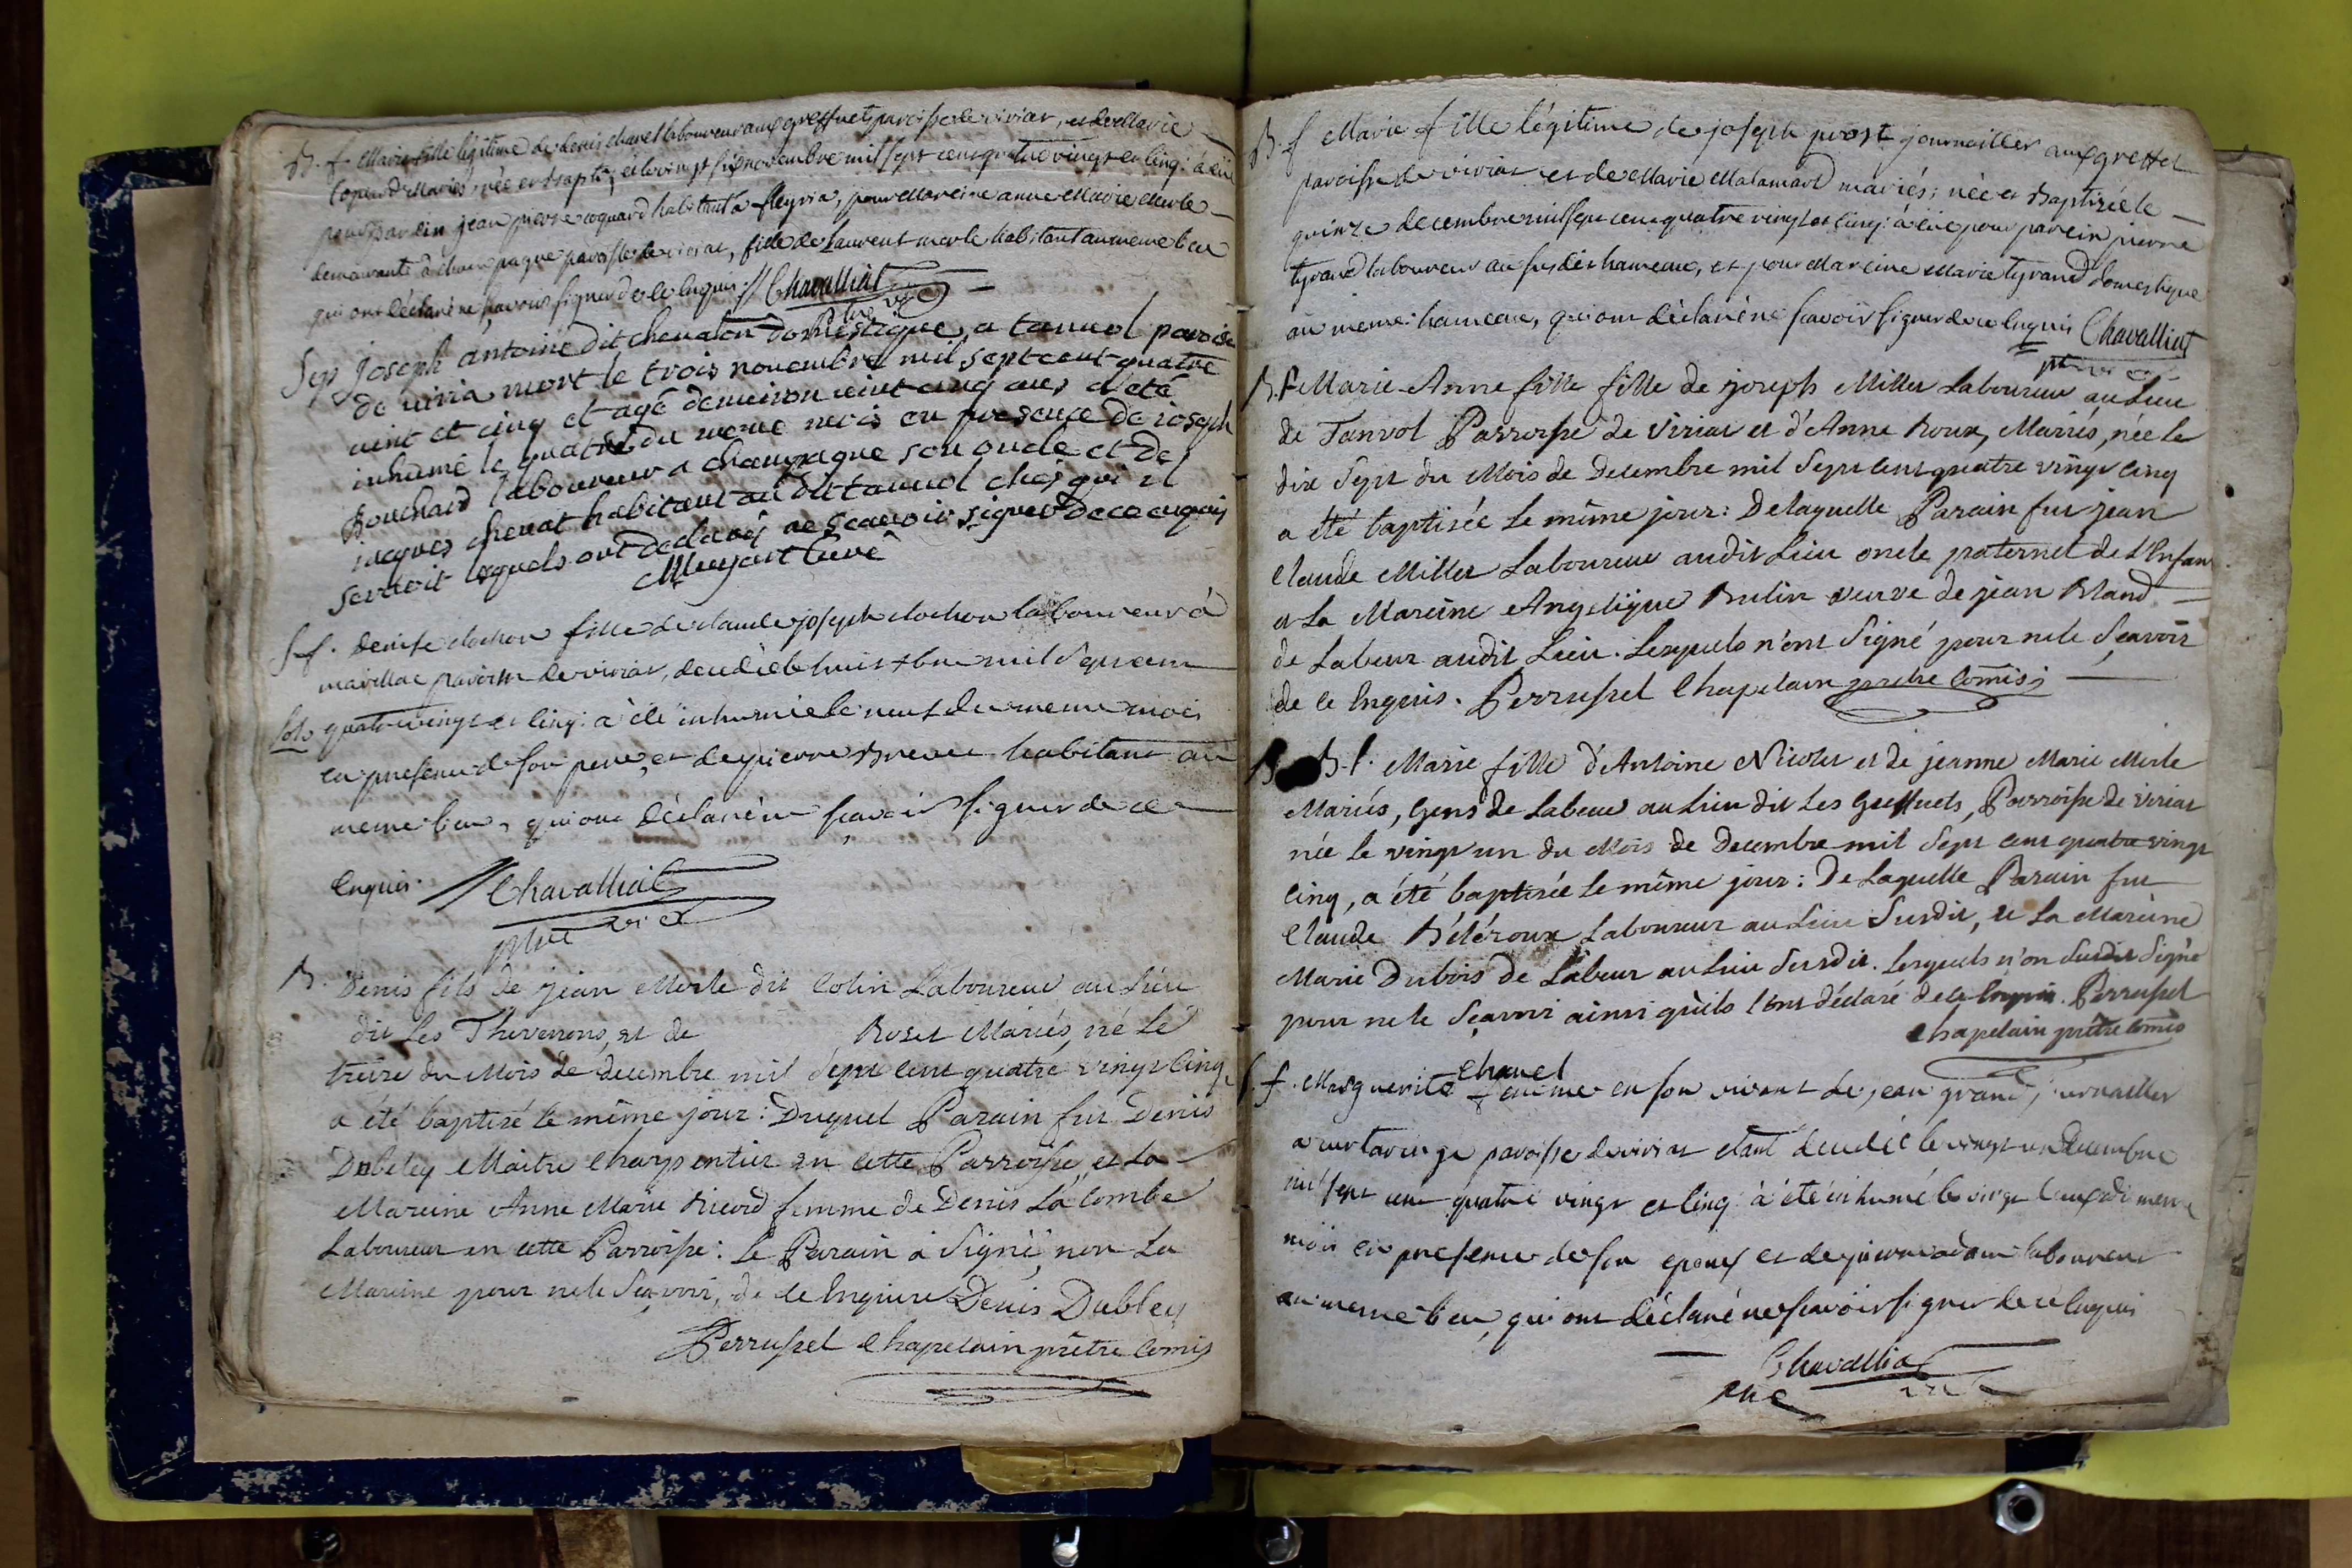 B. f. Marie fille légitime de denis chavet laboureur aux greffnets paroisse de viriat, et de Marie
Coquard Mariés, née et baptisée le vingt six novembre mil sept cens quatre vingt et cinq: a eüe
pour Parrin jean pierre coquard habitant a fleyria, pour Mareine anne Marie Merle
demeurante à champagne paroisse de viriat, fille de Laurent merle habitant au meme lieu
qui ont déclaré ne scavoir signer de ce enquis // Chavalliat
ptre vic
Sep Joseph antoine dit chevalon domestique a tanvol paroise
de viria mort le trois novembre mil sept cent quatre
vint et cinq et agé denviron vint cinq ans a été
inhumé le quatre du meme mois en presence de ioseph
Bouchard laboureur a champagne son oncle et de
iacques chevat habitant au dit tanvol ches qui il
servoit lesquels ont declarés ne scavoir signer de ce enquis
curé
S f. denise clochon fille de claude joseph clochon laboureur à
marillac paroisse de viriat, decedée le huit xbre mil sept cent
quatre vingt et cinq: a été inhumée le neuf du meme mois
en presence de son pere, et de pierre habitant au
meme lieu, qui ont déclaré ne sçavoir signer de ce
enquis. // Chavalliat
ptre vic
B. Denis fils de jean Merle dit Colin Laboureur au Lieu
dit Les Thevenons, et de Roset Mariés, né Le
treize du Mois de decembre mil Sept cent quatre vingt Cinq,
a été baptisé le même jour: Duquel Parain fut Denis
Dubley Maitre Charpentier en cette Parroisse, et La
Mareine Anne Marie Ricard femme de Denis La Combe
Laboureur en cette Parroisse: le Parain à Signé, non La
Mareine pour ne le Sçavoir, de ce Enquise Denis Dubley
Perrussel Chapelain prêtre Comis
B. f Marie fille légitime de joseph prost journailler aux greffet
paroisse de viriat et de Marie Malamard mariés; née et Baptisée le
quinze decembre mil sept cens quatre vingt et cinq: a eüe pour parein pierre
tyrand laboureur au susdit hameau, et pour Mareine Marie tyrand domestique
au meme hameau, qui ont déclaré ne scavoir signer de ce enquis Chavalliat
ptre vic
B. f Marie-Anne fille fille de joseph Millet Laboureur au Lieu
de Tanvol Parroisse de Viriat et d'Anne Roux, Mariés, née le
dix Sept du Mois de Decembre mil Sept cent quatre vingt Cinq
a été baptisée Le même jour: De laquelle Parain fut jean
Claude Millet Laboureur audit Lieu oncle paternel de L'Enfant
et La Mareine Angelique Bulin veuve de jean Bland
de Labeur audit Lieu. Lesquels n'ont Signé pour ne le Sçavoir
de ce Enquis. Perrussel Chapelain prêtre Comis
B. f. Marie fille d'Antoine Nicolet et de jeanne Marie Merle
Mariés, Gens de Labeur au Lieu dit Les Greffnets, Parroisse de Viriat
née Le vingt un du Mois de Decembre mil Sept cent quatre vingt
Cinq, a été baptisée Le même jour: De Laquelle Parain fut
Claude Béléroux Laboureur au Lieu Susdit, et La Mareine
Marie Dubois de Labeur au Lieu Susdit. Lesquels n'on Susdit Signé
pour ne le Sçavoir ainsi qu'ils l'ont déclaré de ce Enquis. Perrussel
Chapelain prêtre Comis
chanel
S. f. Marguerite femme en son vivant de jean grand, journailler
a curtaringe paroisse de viriat etant decedée le vingt un Decembre
mil sept cent quatre vingt et cinq à été inhumé le vingt deux du meme
mois en presence de son epoux et de pierre adam laboureur
au meme lieu, qui ont déclaré ne scavoir signer de ce enquis
Chavalliat
ptre vic